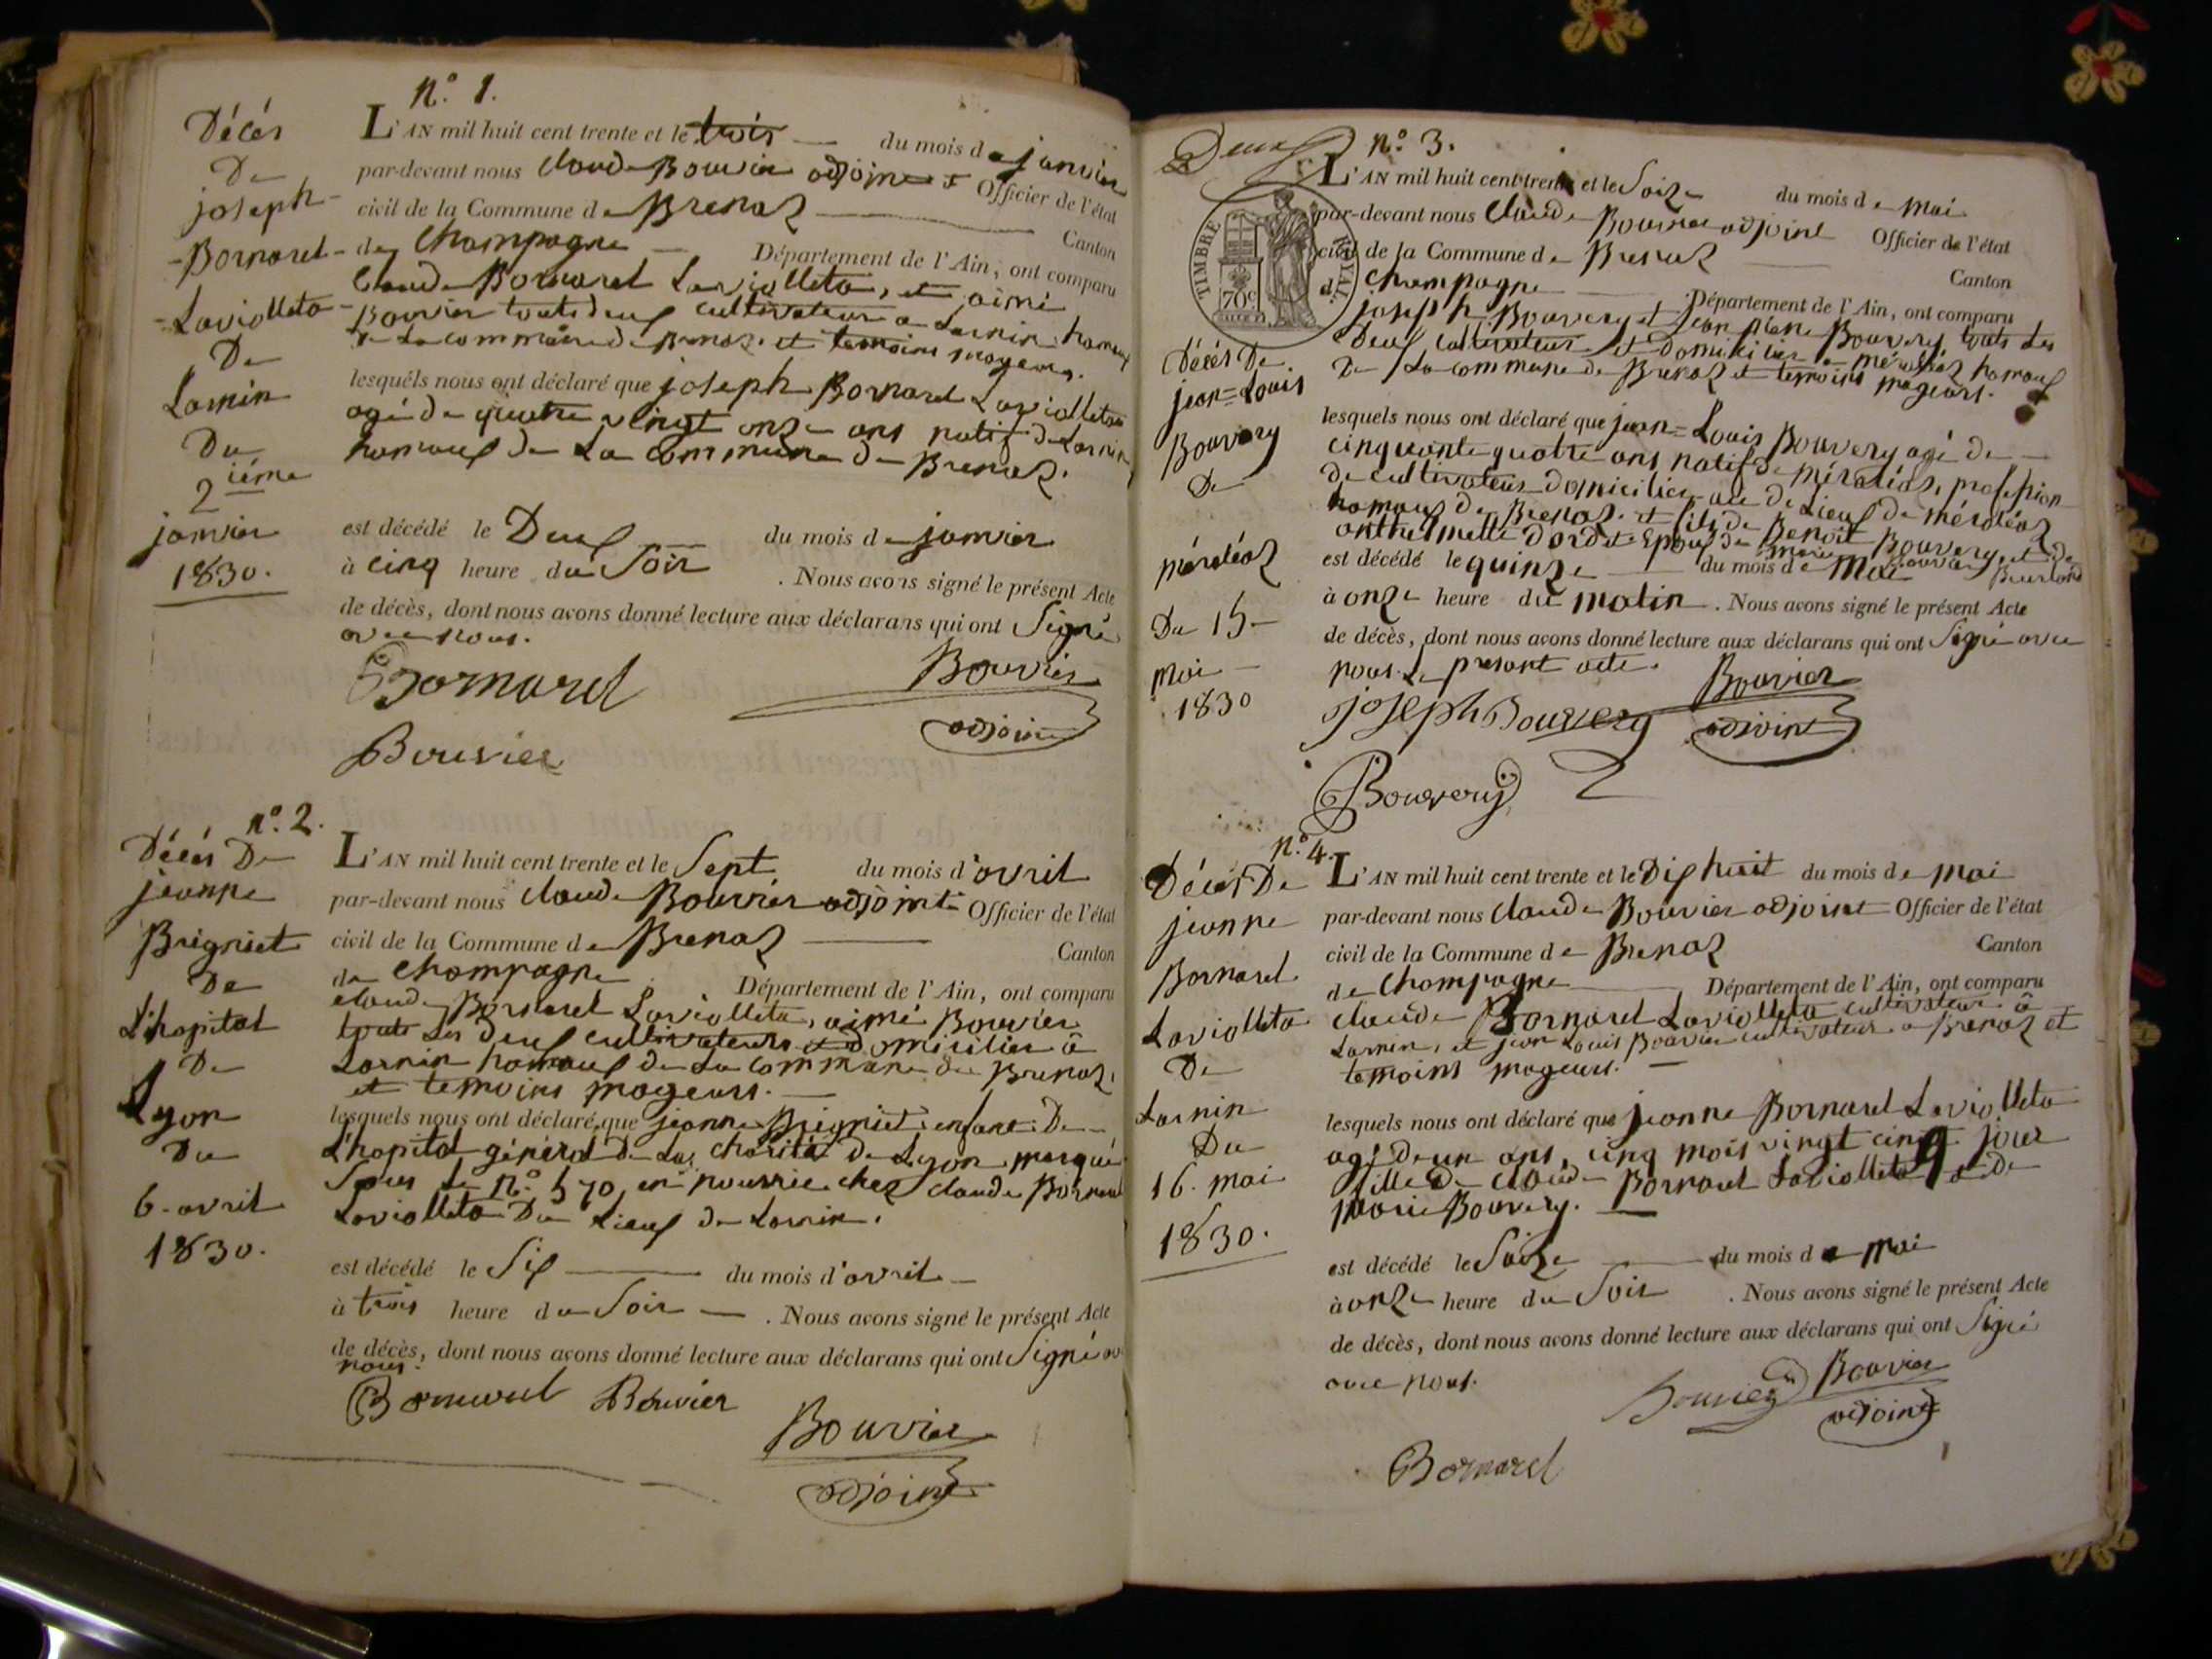 n.° 1.
Décés
De
joseph
Bornarel
Laviolleta
De
Larnin
Du
2 iéme
janvier
1830.
L'AN mil huit cent trente et le trois du mois de janvier
par-devant nous Claude Bouvier adjoint Officier de l'état
civil de la Commune de Brenaz Canton
de Champagne Département de l'Ain, ont comparu
Claude Bornarel Laviolleta, et aimé
Bouvier touts deux cultivateurs a Larnin hamaux
De La commune de Brenaz. et temoins mageurs.
lesquels nous ont déclaré que joseph Bornarel Laviolleta
agé de quatre vingt onze ans natif de Larnin
hamaux de La Commune de Brenaz.
est décédé le Deux du mois de janvier
à cinq heure du Soir . Nous avons signé le présent Acte
de décès, dont nous avons donné lecture aux déclarans qui ont Signé
avec nous.
Bornarel Bouvier
adjoint
Bouvier
n.° 2.
Décés De
jeanne
Brigniet
De
L'hopital
De
Lyon
Du
6. avril
1830.
L'AN mil huit cent trente et le Sept du mois d'avril
par-devant nous Claude Bouvier adjoint Officier de l'état
civil de la Commune de Brenaz Canton
de Champagne Département de l'Ain, ont comparu
claude Bornarel Laviolleta, aimé Bouvier
touts Les deux cultivateurs et domicilies â
Larnin hamaux de La commune de Brenaz,
et temoins mageurs.
lesquels nous ont déclaré que jeanne Brigniet enfant De
L'hopital général de La charité de Lyon marqué
Sous Le n.° 570 en nourrie chez Claude Bornarel
Laviolleta Du Lieux de Larnin.
est décédé le Six du mois d'avril
à trois heure du Soir . Nous avons signé le présent Acte
de décès, dont nous avons donné lecture aux déclarans qui ont Signé av
nous.
Bornarel Bouvier
Bouvier
adjoint
Deux
n.° 3.
TIMBRE ROYAL.
70c
Décés De
jean=Louis
Bouvery
De
méraléaz
Du 15
mai
1830
L'AN mil huit cent trente et le Saize du mois de mai
par-devant nous Claude Bouvier adjoint Officier de l'état
civil de la Commune de Brenaz Canton
d Champagne Département de l'Ain, ont comparu
joseph Bouvery et jean Bouvery touts Les
Deux cultivateurs et Domicilies a méraléaz hamaux
De La commune de Brenaz et temoins mageurs.
lesquels nous ont déclaré que jean=Louis Bouvery agé de
cinquante quatre ans natif de méraléaz, profession
de cultivateur domicilier au de Lieux de méraléaz
hamaux de Brenaz. et fils de Benoit Bouvery, et de
est décédé le quinze du mois de Mai
à onze heure du matin . Nous avons signé le présent Acte
de décès, dont nous avons donné lecture aux déclarans qui ont Signé avec
nous Le présent acte.
Bouvier
adjoint
joseph Bouvery
Bouvery
n.° 4.
Décés De
jeanne
Bornarel
Laviolleta
De
Larnin
Du
16. mai
1830.
L'AN mil huit cent trente et le Dix huit du mois de mai
par-devant nous Claude Bouvier adjoint Officier de l'état
civil de la Commune de Brenaz Canton
de Champagne Département de l'Ain, ont comparu
claude Bornarel Laviolleta cultivateur â
Larnin, et jean Louis Bouvier cultivateur a Brenaz et
temoins mageurs.
lesquels nous ont déclaré que jeanne Bornarel Laviolleta
agé de un ans, cinq mois vingt cinq jour
fille De claude Bornarel Laviolleta et de
Marie Bouvery.
est décédé le Saize du mois de mai
à onze heure du Soir . Nous avons signé le présent Acte
de décès, dont nous avons donné lecture aux déclarans qui ont Signé
avec nous.
Bouvier Bouvier
adjoint
Bornarel